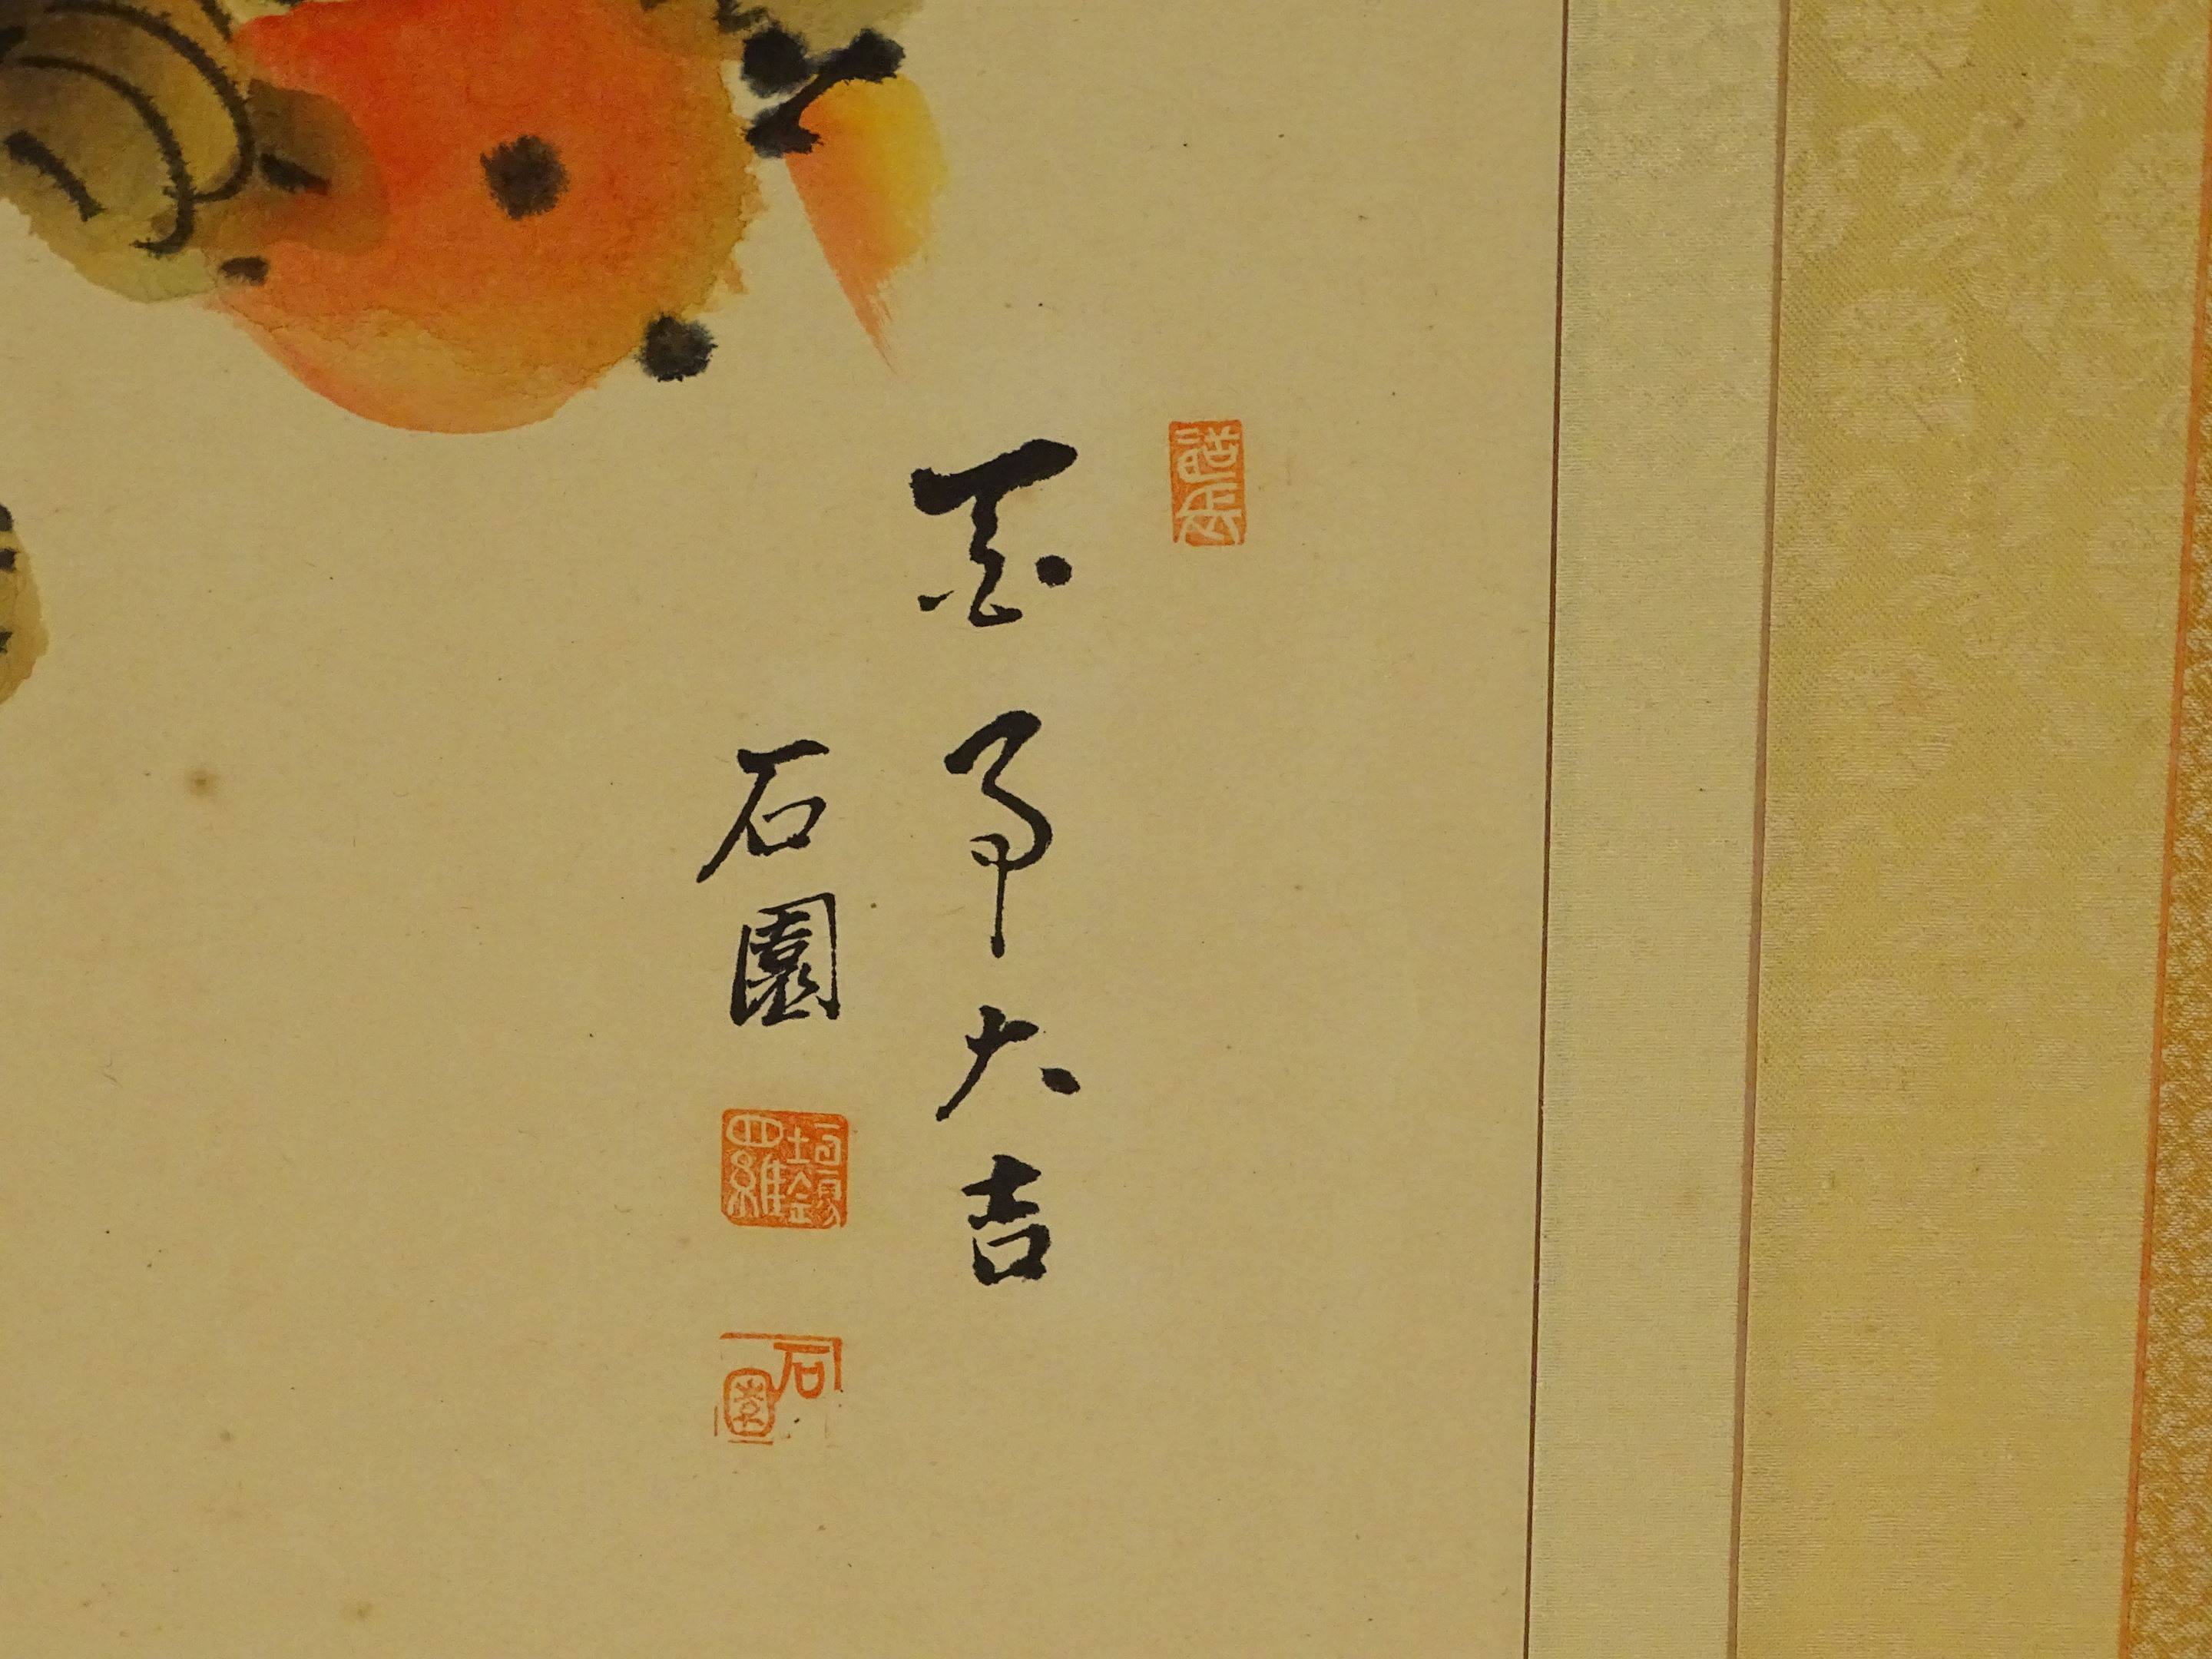 百事大吉
石園
石園